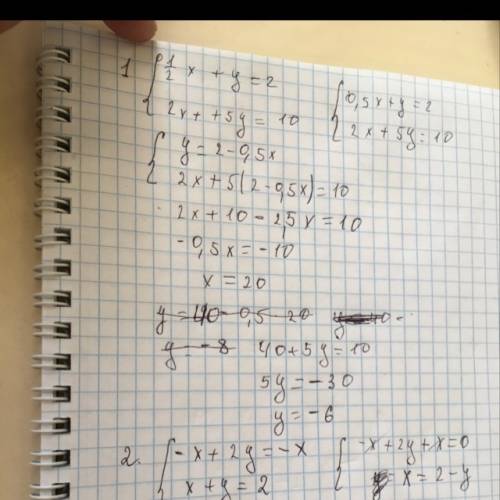 1 { 1/2 x + y = 2
2x + +5y = 10
{ 0,5x+y=2
2x+5y=10
{ y = 2-0,5x
2x+5(2-0,5x)=10
2x+10-2,5x=10
-0,5x=-10
x=20
y = 40 - 0,5 20
y = -8 40+5y=10
5y=-30
y=-6
2. { -x+2y=-x
x+y=2
{ -x+2y+x=0
x=2-y